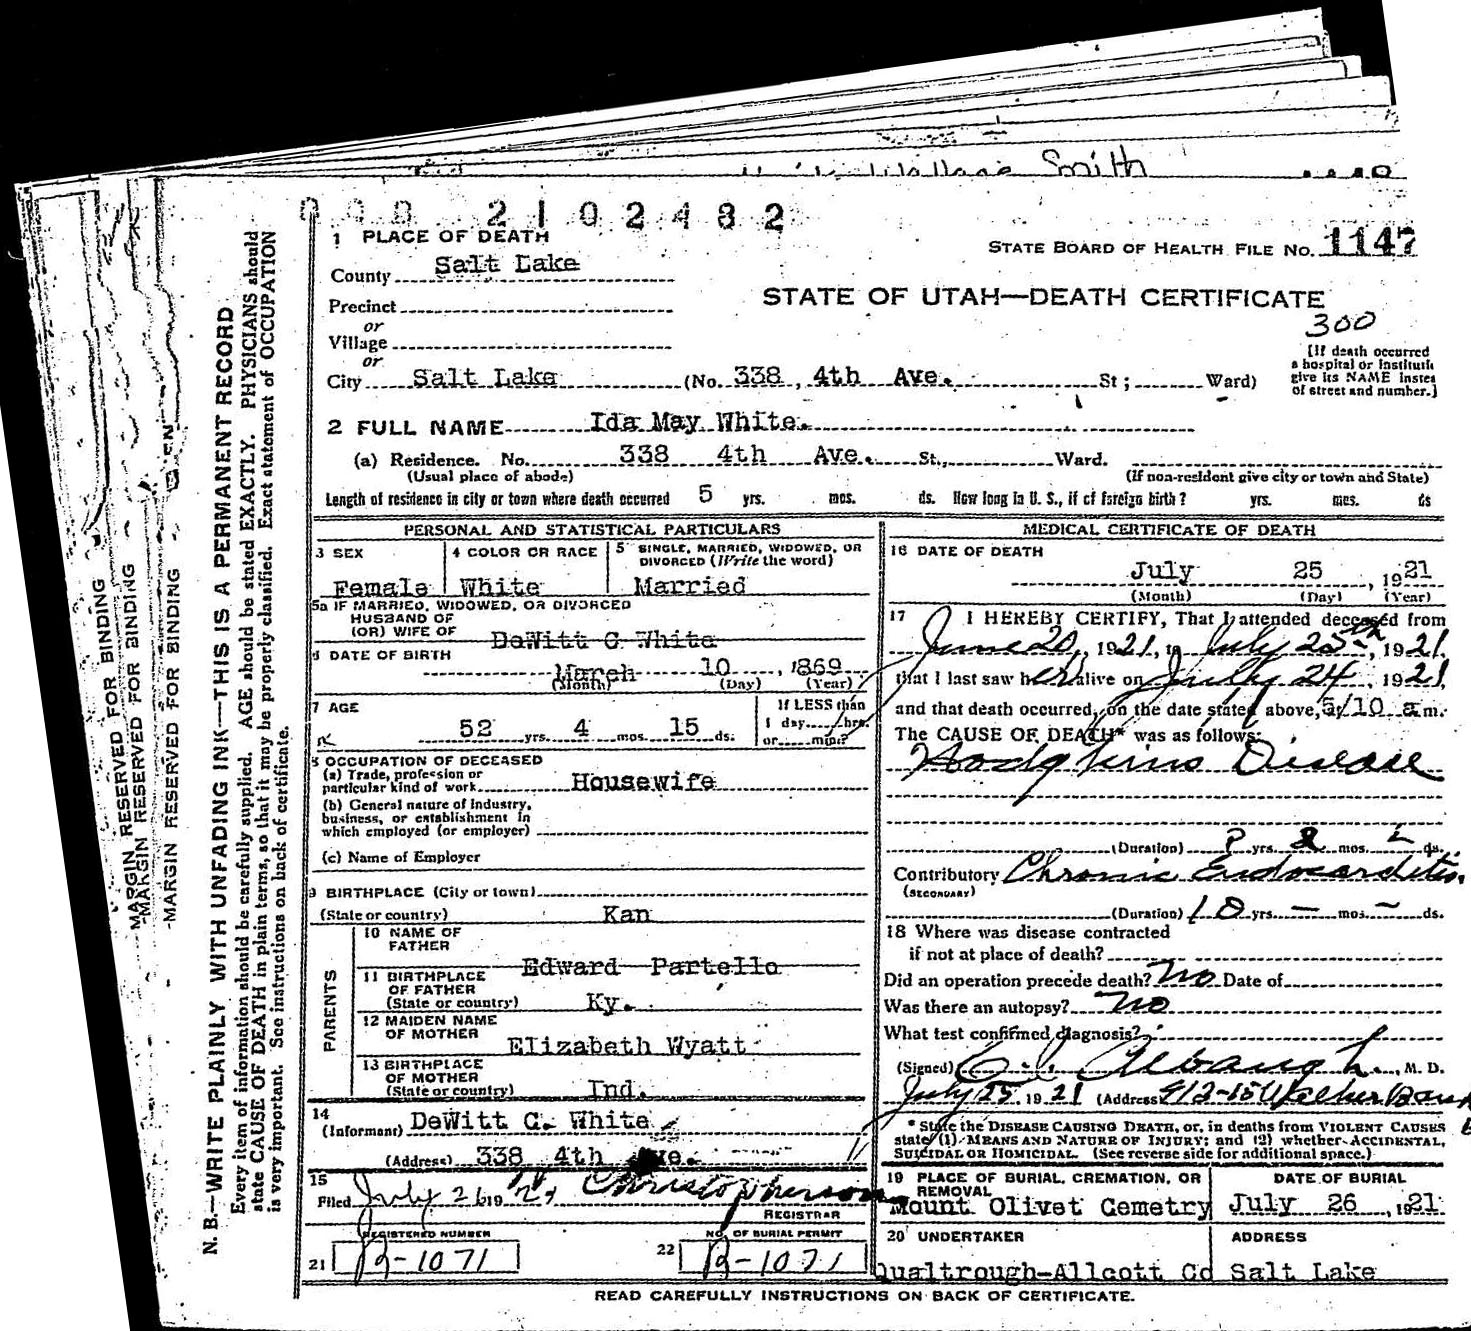 Wallace Smith
2102482
1 PLACE OF DEATH
STATE BOARD OF HEALTH FILE NO. 1147
County Salt Lake
STATE OF UTAH—DEATH CERTIFICATE
Precinct
300
or
Village
or
[If death occurred
a hospital or Instituti
give its NAME instea
of street and number.]
City Salt Lake (No. 338, 4th Ave. St; Ward)
2 FULL NAME Ida May White.
(a) Residence. No. 338 4th Ave. St., Ward.
(Usual place of abode) (If non-resident give city or town and State)
Length of residence in city or town where death occurred 5 yrs. mos. ds. How long in U. S., if of foreign birth? yrs. mos. ds
PERSONAL AND STATISTICAL PARTICULARS
3 SEX Female
4 COLOR OR RACE White
5 SINGLE, MARRIED, WIDOWED, OR DIVORCED (Write the word) Married
5a IF MARRIED, WIDOWED, OR DIVORCED
HUSBAND OF
(OR) WIFE OF DeWitt C White
6 DATE OF BIRTH
March 10, 1869
(Month) (Day) (Year)
7 AGE
52 yrs. 4 mos. 15 ds.
If LESS than
1 day hrs.
or min?
8 OCCUPATION OF DECEASED
(a) Trade, profession or
particular kind of work Housewife
(b) General nature of industry,
business, or establishment in
which employed (or employer)
(c) Name of Employer
9 BIRTHPLACE (City or town)
(State or country) Kan
PARENTS
10 NAME OF
FATHER Edward Partello
11 BIRTHPLACE
OF FATHER
(State or country) Ky.
12 MAIDEN NAME
OF MOTHER Elizabeth Wyatt
13 BIRTHPLACE
OF MOTHER
(State or country) Ind.
14
(Informant) DeWitt C. White
(Address) 338 4th Ave.
15
Filed July 26 1921 Christopherson
REGISTRAR
REGISTERED NUMBER
21 B-1071
NO. OF BURIAL PERMIT
22 B-1071
MEDICAL CERTIFICATE OF DEATH
16 DATE OF DEATH
July 25, 1921
(Month) (Day) (Year)
17 I HEREBY CERTIFY, That I attended deceased from
June 20, 1921, to July 25th, 1921,
that I last saw her alive on July 24, 1921,
and that death occurred, on the date stated above, at 5/10 a m.
The CAUSE OF DEATH* was as follows:
Hodgkins Disease
(Duration) ? yrs. 2 mos. ds.
Contributory Chronic Endocarditis.
(SECONDARY)
(Duration) 10 yrs. — mos. — ds.
18 Where was disease contracted
if not at place of death?
Did an operation precede death? No Date of
Was there an autopsy? No
What test confirmed diagnosis?
(Signed) Albaugh., M. D.
July 25 1921 (Address 912-15 Walker Bank
* State the DISEASE CAUSING DEATH, or, in deaths from VIOLENT CAUSES
state (1) MEANS AND NATURE OF INJURY; and (2) whether ACCIDENTAL,
SUICIDAL OR HOMICIDAL. (See reverse side for additional space.)
19 PLACE OF BURIAL, CREMATION, OR
REMOVAL
Mount Olivet Cemetry
DATE OF BURIAL
July 26, 1921
20 UNDERTAKER
Qualtrough-Allcott Co
ADDRESS
Salt Lake
READ CAREFULLY INSTRUCTIONS ON BACK OF CERTIFICATE.
MARGIN RESERVED FOR BINDING
MARGIN RESERVED FOR BINDING
MARGIN RESERVED FOR BINDING
N. B.—WRITE PLAINLY WITH UNFADING INK—THIS IS A PERMANENT RECORD
Every item of information should be carefully supplied. AGE should be stated EXACTLY. PHYSICIANS should
state CAUSE OF DEATH in plain terms, so that it may be properly classified. Exact statement of OCCUPATION
is very important. See instructions on back of certificate.